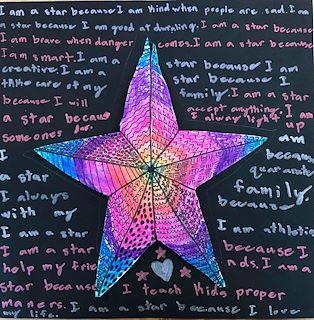 I am a star because I am kind when people are sad. I am
a star because I am good at doubling. I am a star because
I am brave when danger comes. I am a star because
I am smart. I am a star because I am
creative. I am a star because I
take care of my family. I am a star
because I will accept anything. I am
a star because I always light up
someones day. I am
I am because
a star
I always family
with my because
I am a star I am athletic
I am a star because I
help my friends. I am a
star because I teach kids proper
maners. I am a star because I love
my life.